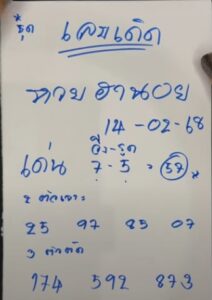 * รูด
เลขเด็ด
หวยฮานอย
14-02-68
วิ่ง-รูด
เด่น 7-5 = 57 *
2 ตัวเจาะ
25 97 85 07
3 ตัวตัด
174 592 873